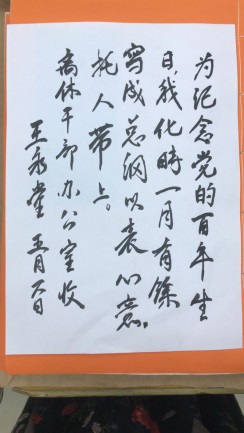 为纪念党的百年生
日，我化时一月有余
写成总纲以表心意。
托人带上。
离休干部办公室收
王永堂 五月六日